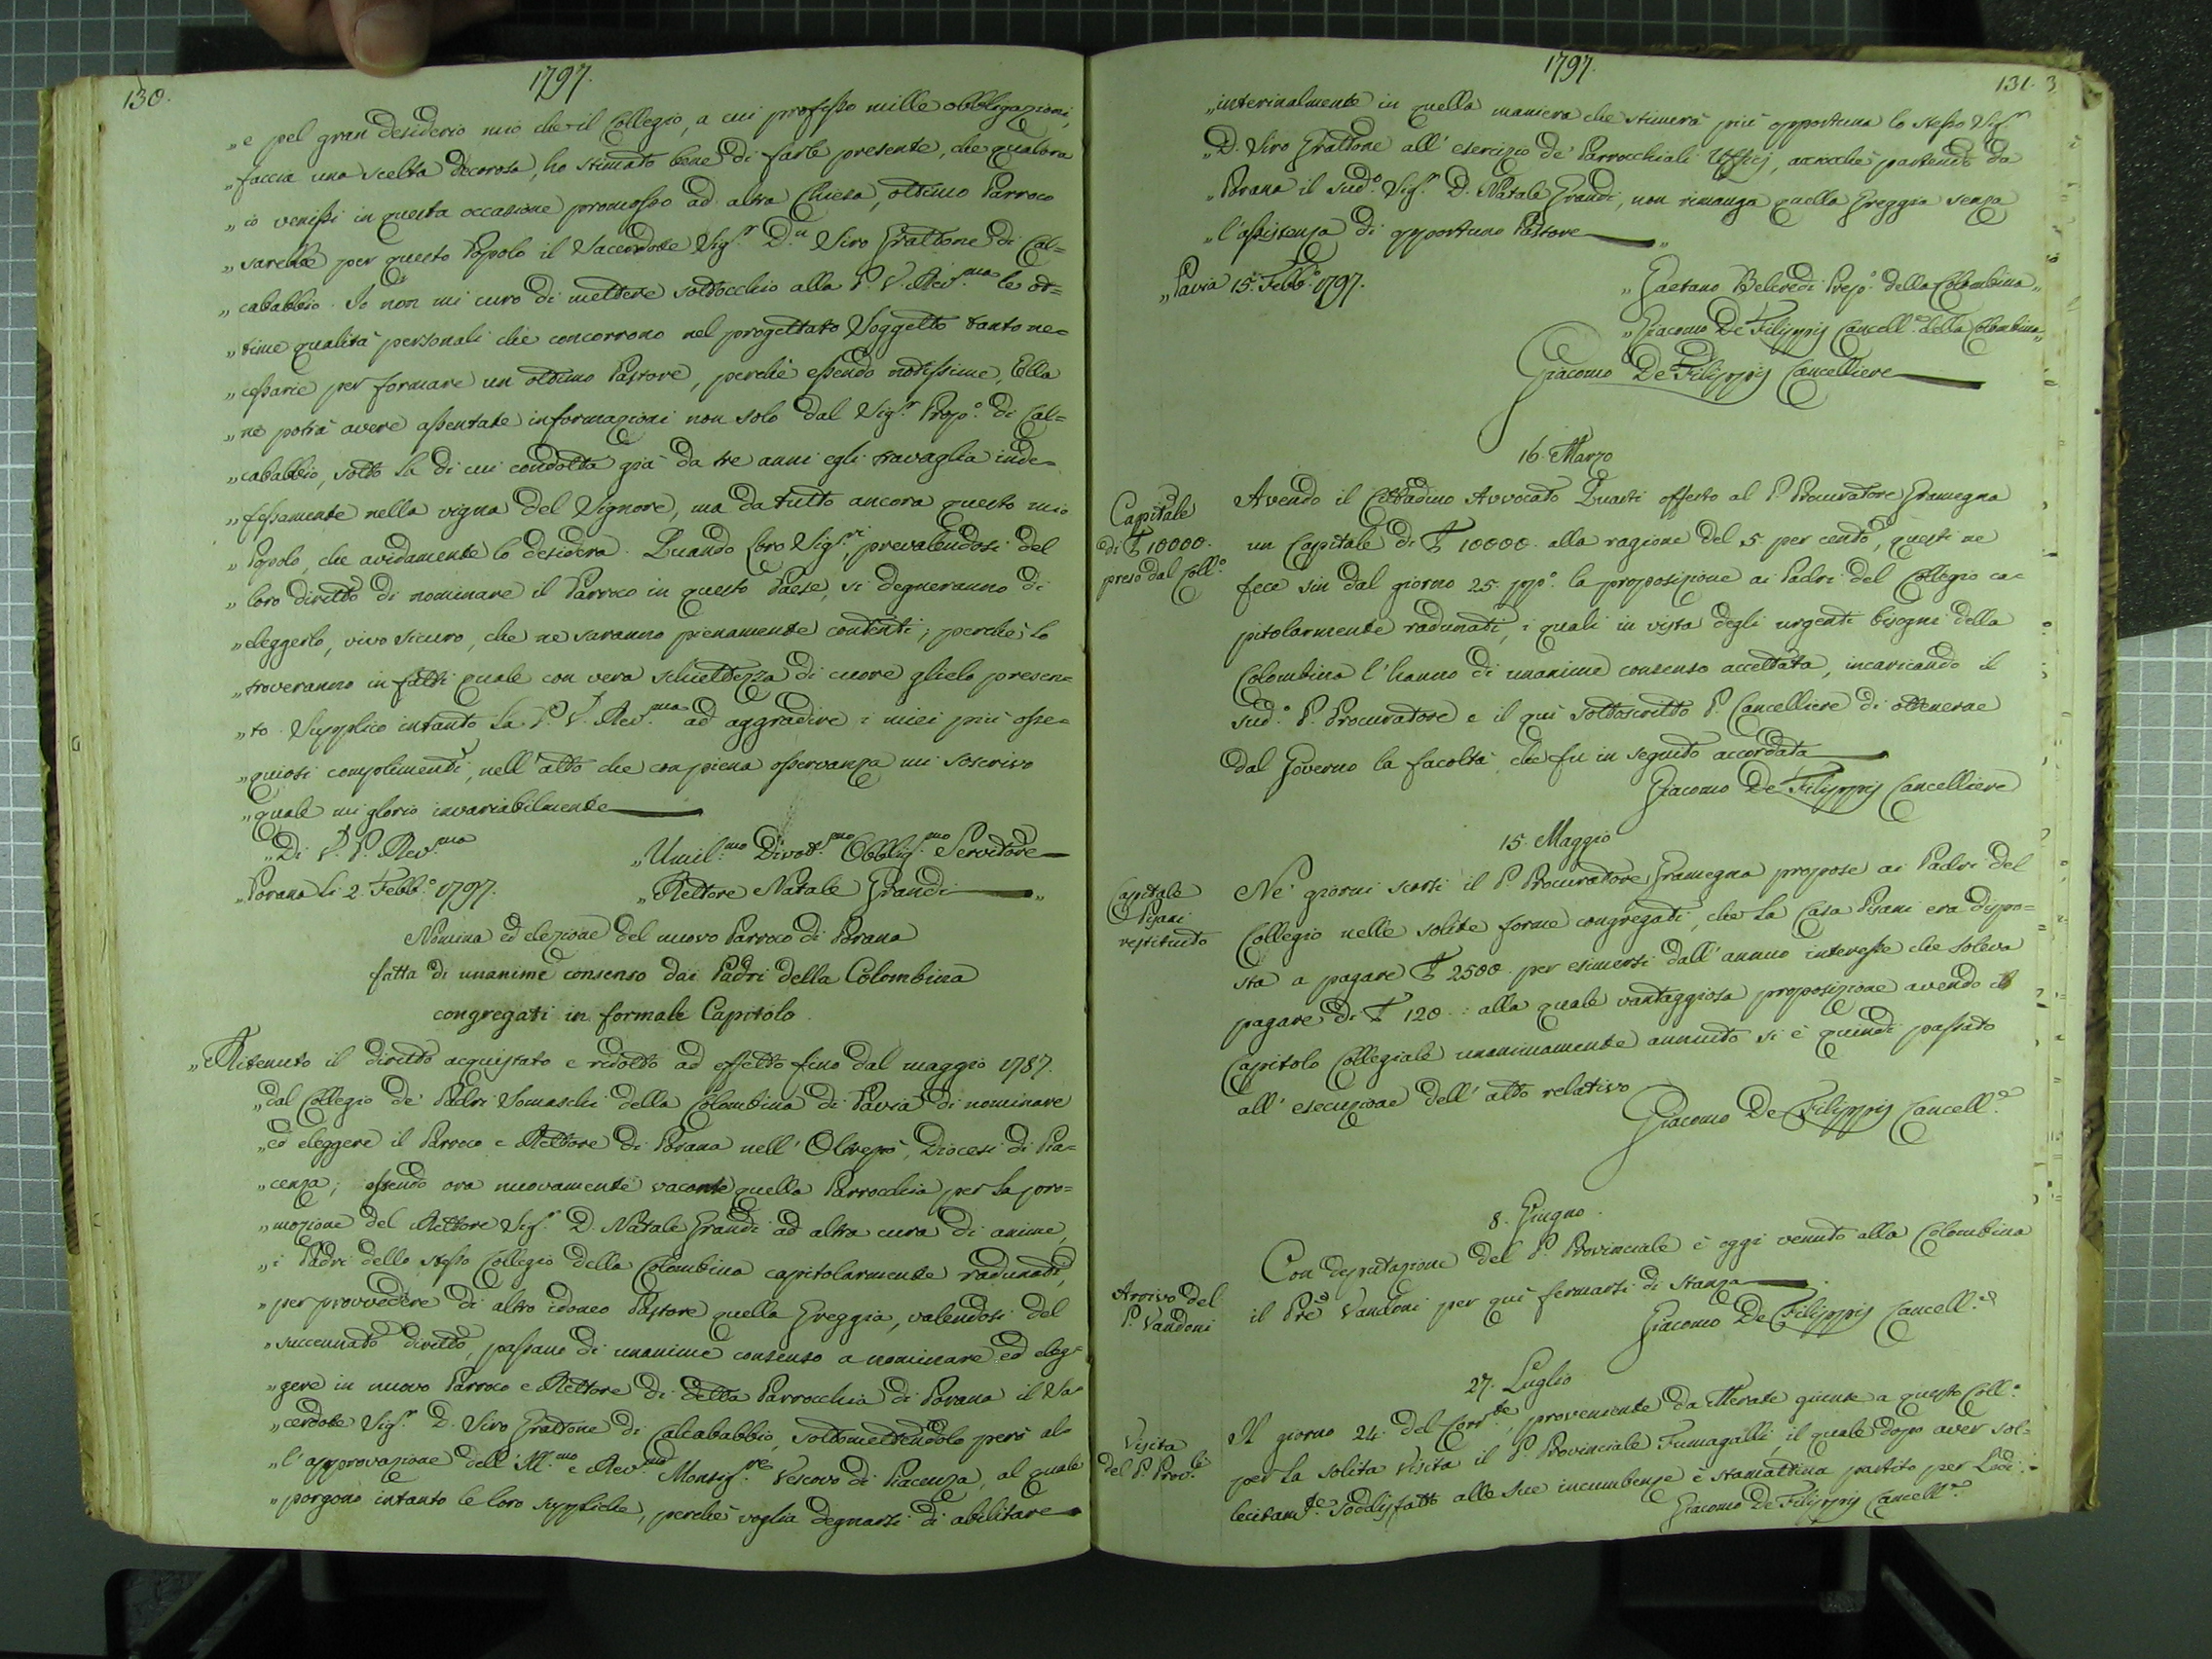 130.
1797.
„e pel gran desiderio mio che il Collegio, a cui professo mille obbligazioni,
„faccia una scelta decorosa, ho stimato bene di farle presente, che qualora
„io venissi in questa occasione promosso ad altra Chiesa, ottimo Parroco
„sarebbe per questo Popolo il Sacerdote Sig.r D.n Siro Grattone di Cal=
„cababbio. Io non mi curo di mettere sott'occhio alla P. V. Rev.ma le ot=
„time qualità personali che concorrono nel progettato Soggetto tanto ne=
„cessarie per formare un ottimo Pastore, perchè essendo notissime, Ella
„ne potrà avere assentate informazioni non solo dal Sig.r Prop.o di Cal=
„cababbio, sotto la di cui condotta già da tre anni egli travaglia inde=
„fessamente nella vigna del Signore, ma da tutto ancora questo mio
„Popolo, che avidamente lo desidera. Quando Loro Sig.ri, prevalendosi del
„loro diritto di nominare il Parroco in questo Paese, si degneranno di
„eleggerlo, vivo sicuro, che ne saranno pienamente contenti; perchè lo
„troveranno in fatti quale con vera schiettezza di cuore glielo presen=
„to. Supplico intanto la P. V. Rev.ma ad aggradire i miei più osse=
„quiosi complimenti, nell'atto che con piena osservanza mi soscrivo
„quale mi glorio invariabilmente
„Di V. P. Rev.ma „Umil.mo Divot.mo Obblig.mo Servitore
„Porana li 2. Febb.o 1797. „Rettore Natale Grandi „
Nomina ed elezione del nuovo Parroco di Porana
fatta di unanime consenso dai Padri della Colombina
congregati in formale Capitolo.
„Ritenuto il diritto acquistato e ridotto ad effetto fino dal maggio 1787.
„dal Collegio de' Padri Somaschi della Colombina di Pavia di nominare
„ed eleggere il Parroco e Rettore di Porana nell'Oltrepò, Diocesi di Pia=
„cenza; essendo ora nuovamente vacante quella Parrocchia per la pro=
„mozione del Rettore Sig.r D. Natale Grandi ad altra cura di anime,
„i Padri dello stesso Collegio della Colombina capitolarmente radunati,
„per provvedere di altro idoneo Pastore quella Greggia, valendosi del
„succennato diritto, passano di unanime consenso a nominare ed eleg=
„gere in nuovo Parroco e Rettore di detta Parrocchia di Porana il Sa=
„cerdote Sig.r D. Siro Grattone di Calcababbio, sottomettendolo però al=
„l'approvazione dell'Ill.mo e Rev.mo Monsig.re Vescovo di Piacenza, al quale
„porgono intanto le loro suppliche, perchè voglia degnarsi di abilitare
1797.
131. 3
„interinalmente in quella maniera che stimerà più opportuna lo stesso Sig.r
„D. Siro Grattone all'esercizio de' Parrocchiali Uffizj, acciocchè partendo da
„Porana il sud.o Sig.r D. Natale Grandi, non rimanga quella Greggia senza
„l'assistenza di opportuno Pastore „
„Pavia 15. Febb.o 1797. „Gaetano Belcredi Prep.o della Colombina„
„Giacomo De Filippis Cancell.e della Colombina„
Giacomo De Filippis Cancelliere
16. Marzo
Capitale
di ₤ 10000.
preso dal Coll.o
Avendo il Cittadino Avvocato Quarti offerto al P. Procuratore Gramegna
un Capitale di ₤ 10000. alla ragione del 5 per cento, questi ne
fece sin dal giorno 25. pp.o la proposizione ai Padri del Collegio ca=
pitolarmente radunati, i quali in vista degli urgenti bisogni della
Colombina l'hanno di unanime consenso accettata, incaricando il
sud.o P. Procuratore e il quì sottoscritto P. Cancelliere di ottenerne
dal Governo la facoltà, che fu in seguito accordata
Giacomo De Filippis Cancelliere
15. Maggio
Capitale
Pisani
restituito
Ne' giorni scorsi il P. Procuratore Gramegna propose ai Padri del
Collegio nelle solite forme congregati, che la Casa Pisani era dispo=
sta a pagare ₤ 2500. per esimersi dall'annuo interesse che soleva
pagare di ₤ 120.: alla quale vantaggiosa proposizione avendo il
Capitolo Collegiale unanimamente annuito si è quindi passato
all'esecuzione dell'atto relativo
Giacomo De Filippis Cancell.e
8. Giugno.
Arrivo del
P. Vandoni
Con deputazione del P. Provinciale è oggi venuto alla Colombina
il Pre Vandoni per quì fermarsi di stanza
Giacomo De Filippis Cancell.e
27. Luglio
Visita
del P. Prov.le
Il giorno 24. del Corr.te, proveniente da Merate giunse a questo Coll.o
per la solita Visita il P. Provinciale Fumagalli, il quale dopo aver sol=
lecitam.te soddisfatto alle sue incumbenze è stamattina partito per Lodi.
Giacomo De Filippis Cancell.e